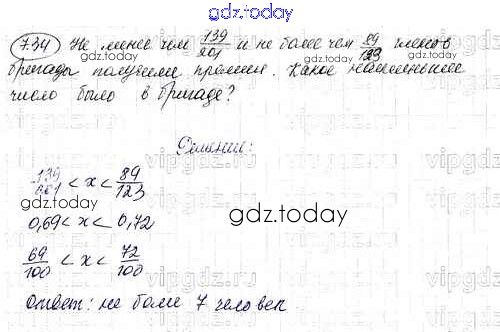 gdz.today
7.34 Не менее чем 139/201 и не более чем 89/123 членов
бригады получили премии. Какое наименьшее
число было в бригаде?
Решение:
139/201 < x < 89/123
gdz.today
0,69 < x < 0,72
69/100 < x < 72/100
Ответ: не более 7 человек.
gdz.today